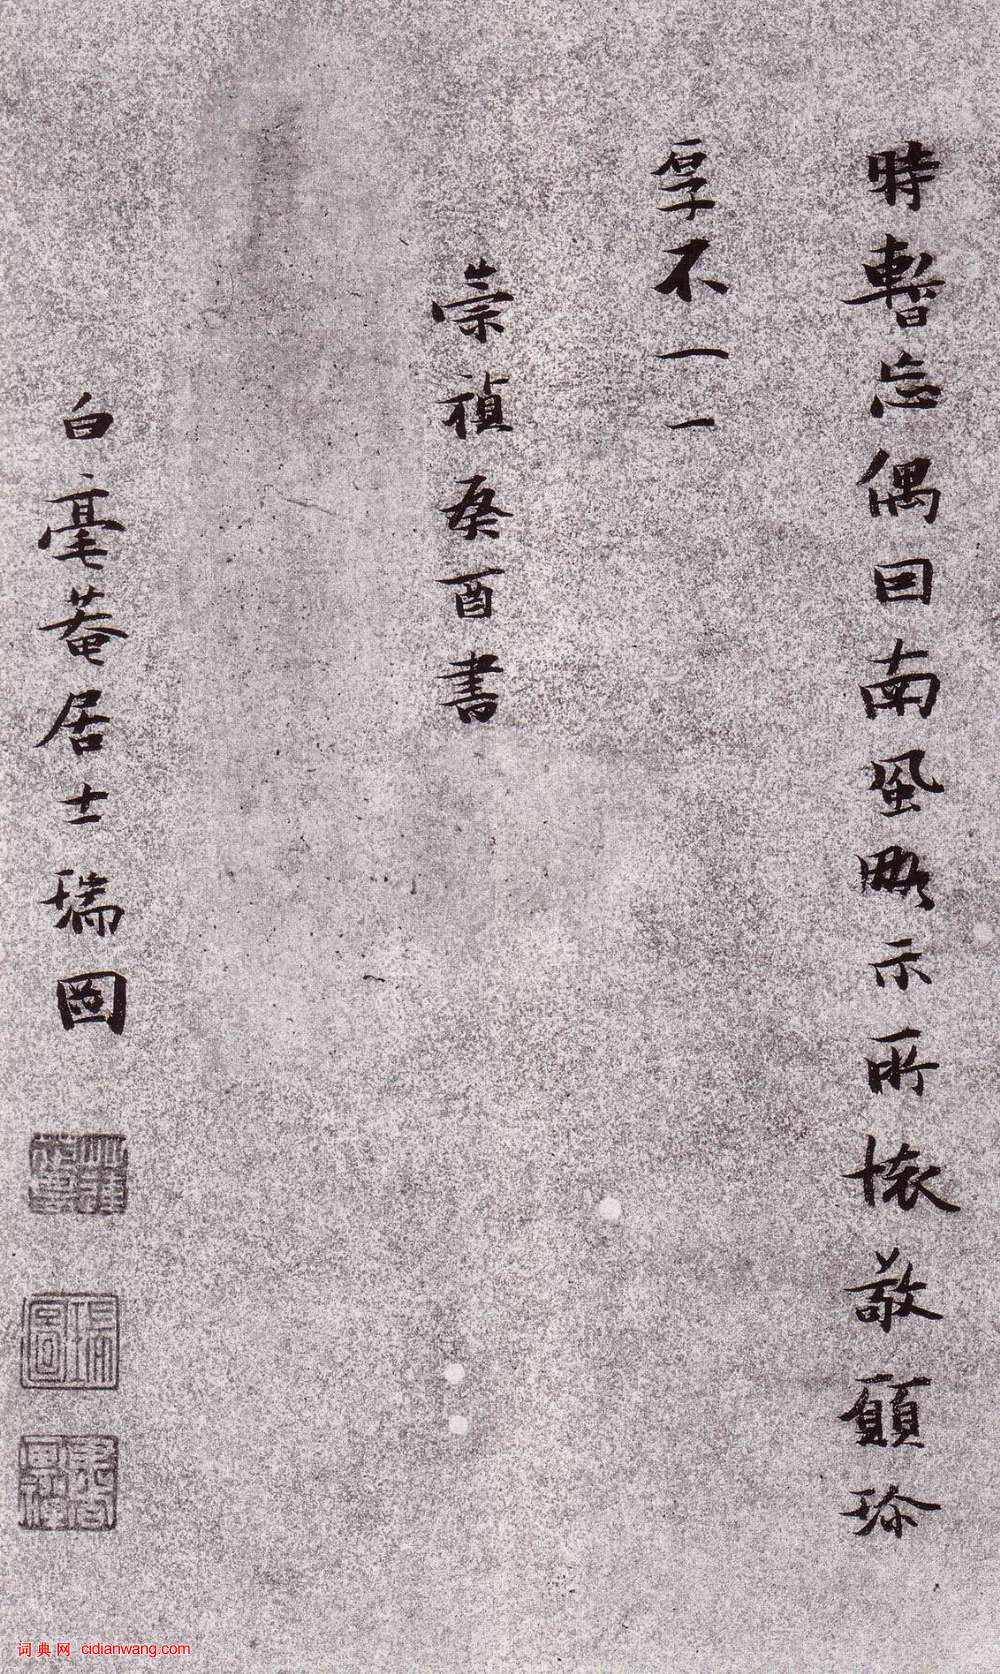 時暫忘偶因南風略示所懷敬願珎
厚不一一
崇禎癸酉書
白毫菴居士瑞圖
词典网 cidianwang.com